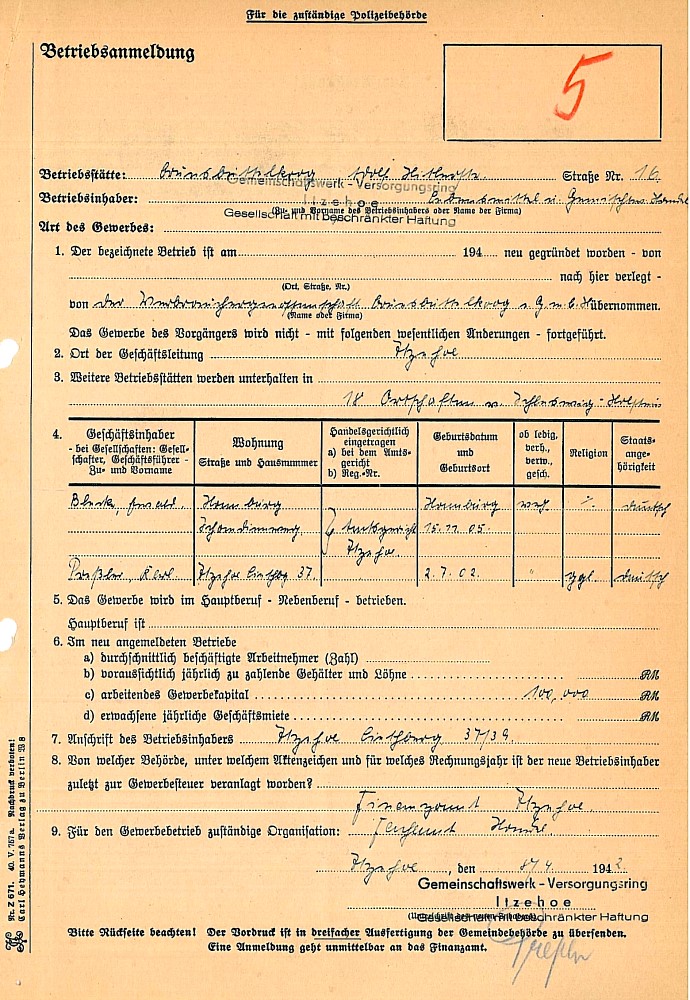 Für die zuständige Polizeibehörde
Betriebsanmeldung
5
Betriebsstätte: Brunsbüttelkoog Adolf Hitlerstr. Straße Nr. 16.
Gemeinschaftswerk - Versorgungsring
Betriebsinhaber: Itzehoe Lebensmittel u. Gemischtw. Handel
(Zu- und Vorname des Betriebsinhabers oder Name der Firma)
Gesellschaft mit beschränkter Haftung
Art des Gewerbes:
1. Der bezeichnete Betrieb ist am 194 neu gegründet worden - von
nach hier verlegt -
(Ort, Straße, Nr.)
von der Verbrauchergenossenschaft Brunsbüttelkoog e.G.m.b.H übernommen.
(Name oder Firma)
Das Gewerbe des Vorgängers wird nicht - mit folgenden wesentlichen Änderungen - fortgeführt.
2. Ort der Geschäftsleitung Itzehoe
3. Weitere Betriebsstätten werden unterhalten in
18 Ortschaften v. Schleswig-Holstein
4. Geschäftsinhaber - bei Gesellschaften: Gesellschafter, Geschäftsführer - Zu- und Vorname
Wohnung Straße und Hausnummer
Handelsgerichtlich eingetragen a) bei dem Amtsgericht b) Reg.-Nr.
Geburtsdatum und Geburtsort
ob ledig, verh., verw., gesch.
Religion
Staatsangehörigkeit
Hamburg Hamburg verh. deutsch
Amtsgericht 15.11.05.
Itzehoe
Preßler, Karl. Itzehoe 37. 2.7.02. " ggl. deutsch
5. Das Gewerbe wird im Hauptberuf - Nebenberuf - betrieben.
Hauptberuf ist
6. Im neu angemeldeten Betriebe
a) durchschnittlich beschäftigte Arbeitnehmer (Zahl)
b) voraussichtlich jährlich zu zahlende Gehälter und Löhne RM
c) arbeitendes Gewerbekapital 100,000 RM
d) erwachsene jährliche Geschäftsmiete RM
7. Anschrift des Betriebsinhabers Itzehoe 37/39
8. Von welcher Behörde, unter welchem Aktenzeichen und für welches Rechnungsjahr ist der neue Betriebsinhaber
zuletzt zur Gewerbesteuer veranlagt worden?
Finanzamt Itzehoe.
9. Für den Gewerbebetrieb zuständige Organisation: Fachamt Handel
Itzehoe, den 8/4 1942
Gemeinschaftswerk - Versorgungsring
Itzehoe
Gesellschaft mit beschränkter Haftung
Preßler
Bitte Rückseite beachten! Der Vordruck ist in dreifacher Ausfertigung der Gemeindebehörde zu übersenden.
Eine Anmeldung geht unmittelbar an das Finanzamt.
Nr. Z 671. 40. V. 7/67 a. Nachdruck verboten!
Carl Heymanns Verlag zu Berlin W 8